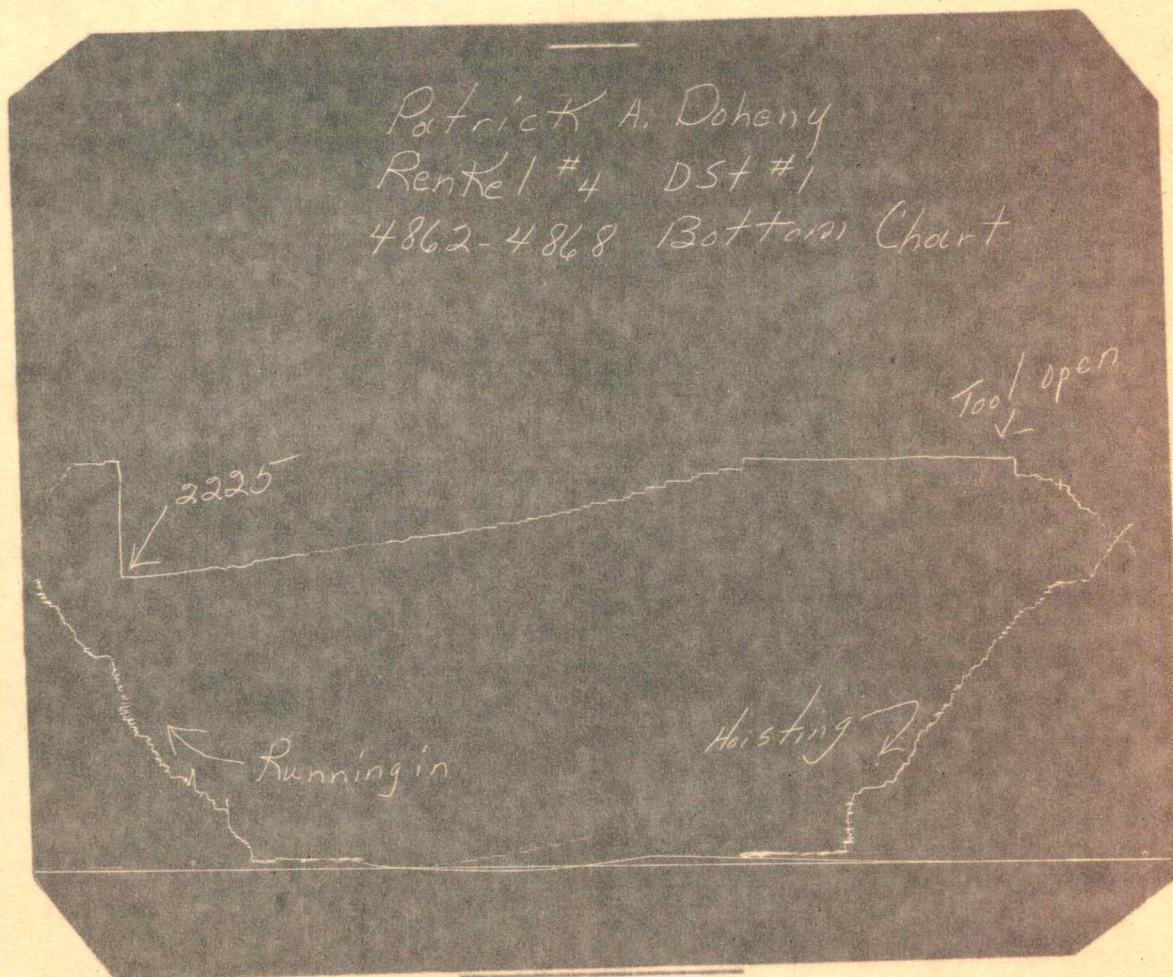 Patrick A. Doheny
Renkel #4 DSt #1
4862-4868 Bottom Chart
Tool open
2225
Hoisting
Running in